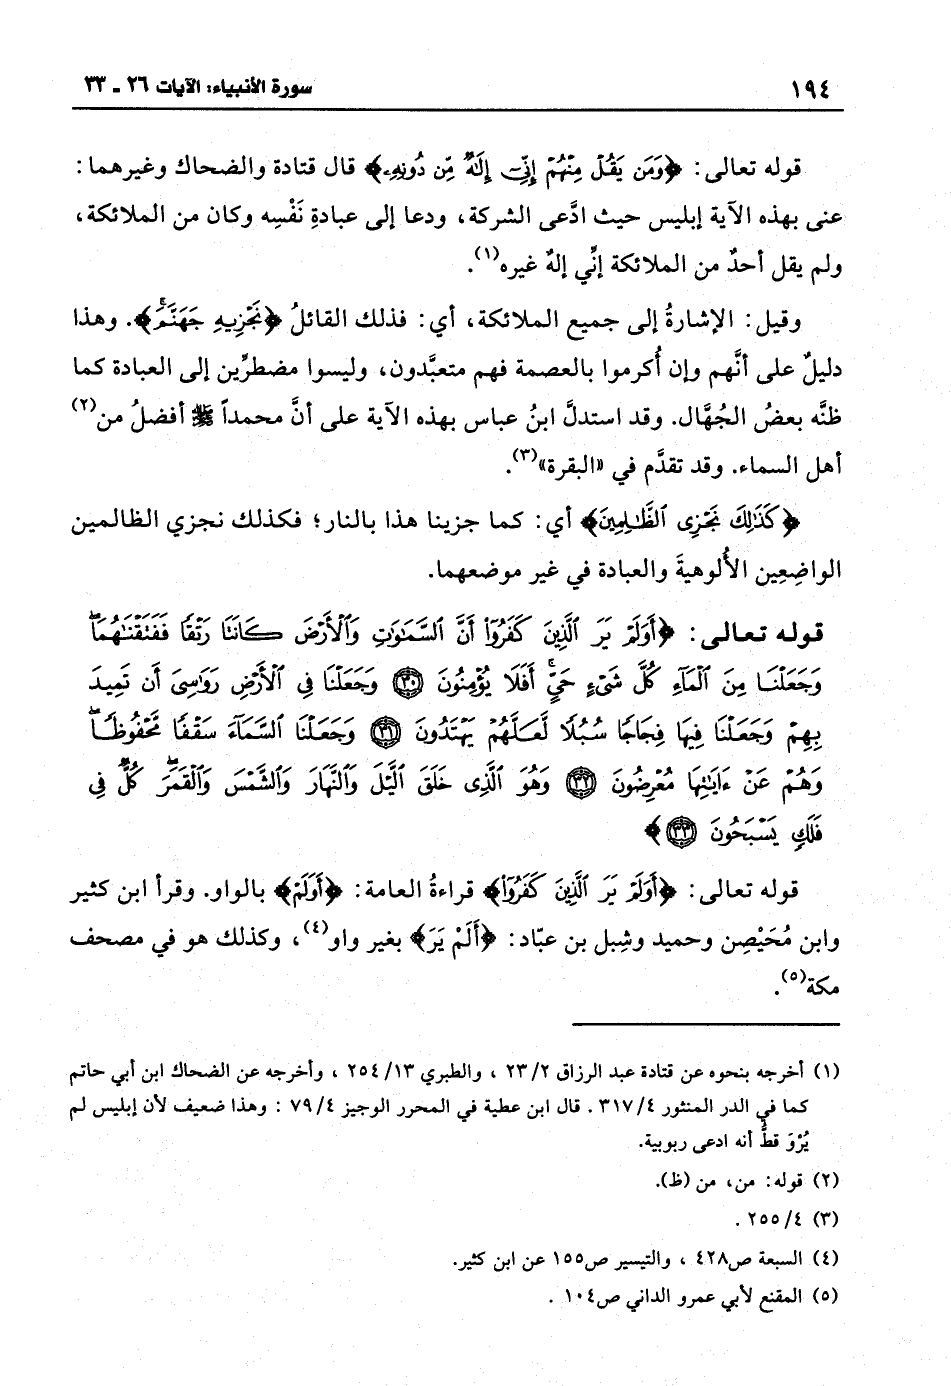 ١٩٤
سورة الأنبياء: الآيات ٢٦ ـ ٣٣
قوله تعالى: ﴿وَمَن يَقُلْ مِنْهُمْ إِنِّىٓ إِلَٰهٌ مِّن دُونِهِۦ﴾ قال قتادة والضحاك وغيرهما:
عنى بهذه الآية إبليس حيث ادَّعى الشركة، ودعا إلى عبادةِ نَفْسِه وكان من الملائكة،
ولم يقل أحدٌ من الملائكة إنِّي إلهٌ غيره(١).
وقيل: الإشارةُ إلى جميع الملائكة، أي: فذلك القائلُ ﴿نَجْزِيهِ جَهَنَّمَ﴾. وهذا
دليلٌ على أنَّهم وإن أُكرموا بالعصمة فهم متعبَّدون، وليسوا مضطرِّين إلى العبادة كما
ظنَّه بعضُ الجُهَّال. وقد استدلَّ ابنُ عباس بهذه الآية على أنَّ محمداً ﷺ أفضلُ من(٢)
أهل السماء. وقد تقدَّم في «البقرة»(٣).
﴿كَذَٰلِكَ نَجْزِى ٱلظَّٰلِمِينَ﴾ أي: كما جزينا هذا بالنار؛ فكذلك نجزي الظالمين
الواضِعِين الأُلوهيةَ والعبادة في غير موضعهما.
قوله تعالى: ﴿أَوَلَمْ يَرَ ٱلَّذِينَ كَفَرُوٓا۟ أَنَّ ٱلسَّمَٰوَٰتِ وَٱلْأَرْضَ كَانَتَا رَتْقًا فَفَتَقْنَٰهُمَا ۖ
وَجَعَلْنَا مِنَ ٱلْمَآءِ كُلَّ شَىْءٍ حَىٍّ ۖ أَفَلَا يُؤْمِنُونَ ﴿٣٠﴾ وَجَعَلْنَا فِى ٱلْأَرْضِ رَوَٰسِىَ أَن تَمِيدَ
بِهِمْ وَجَعَلْنَا فِيهَا فِجَاجًا سُبُلًا لَّعَلَّهُمْ يَهْتَدُونَ ﴿٣١﴾ وَجَعَلْنَا ٱلسَّمَآءَ سَقْفًا مَّحْفُوظًا ۖ
وَهُمْ عَنْ ءَايَٰتِهَا مُعْرِضُونَ ﴿٣٢﴾ وَهُوَ ٱلَّذِى خَلَقَ ٱلَّيْلَ وَٱلنَّهَارَ وَٱلشَّمْسَ وَٱلْقَمَرَ ۖ كُلٌّ فِى
فَلَكٍ يَسْبَحُونَ ﴿٣٣﴾﴾
قوله تعالى: ﴿أَوَلَمْ يَرَ ٱلَّذِينَ كَفَرُوٓا۟﴾ قراءةُ العامة: ﴿أَوَلَمْ﴾ بالواو. وقرأ ابن كثير
وابن مُحَيْصِن وحميد وشِبل بن عبّاد: ﴿أَلَمْ يَرَ﴾ بغير واو(٤)، وكذلك هو في مصحف
مكة(٥).
(١) أخرجه بنحوه عن قتادة عبد الرزاق ٢/ ٢٣ ، والطبري ١٣/ ٢٥٤ ، وأخرجه عن الضحاك ابن أبي حاتم
كما في الدر المنثور ٤/ ٣١٧ . قال ابن عطية في المحرر الوجيز ٤/ ٧٩ : وهذا ضعيف لأن إبليس لم
يُرْوَ قطُّ أنه ادعى ربوبية.
(٢) قوله: من، من (ظ).
(٣) ٤/ ٢٥٥ .
(٤) السبعة ص٤٢٨ ، والتيسير ص١٥٥ عن ابن كثير.
(٥) المقنع لأبي عمرو الداني ص١٠٤ .